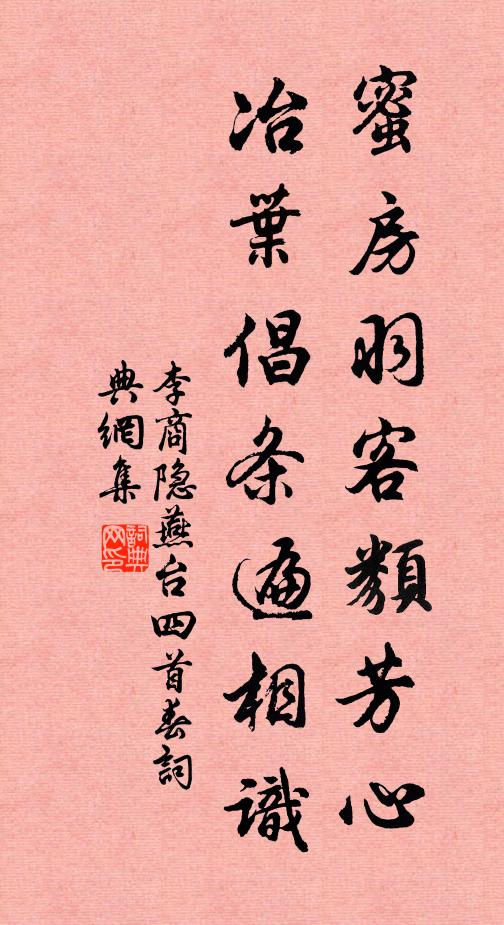 蜜房羽客類芳心
冶葉倡条遍相識
李商隐燕台四首春詞
典網集
詞典网印